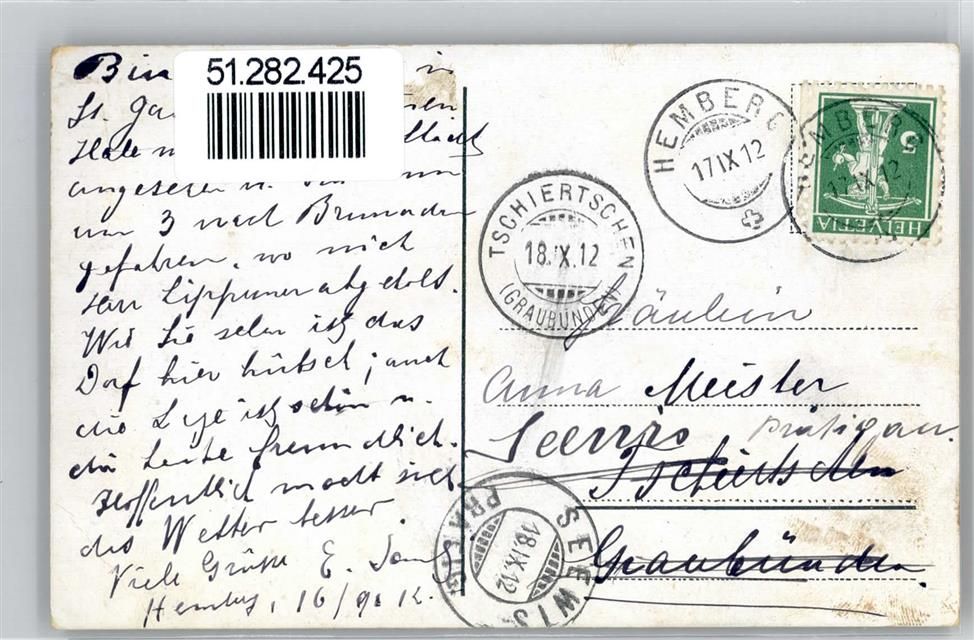 51.282.425
Bin in
St. Ga
angesehen u.
um 3 nach Brunnadern
gefahren, wo mich
Herr Lippuner abgeholt.
Wie Sie sehen ist das
Dorf hier hübsch; auch
die Lage ist schön u.
die Leute freundlich.
Hoffentlich macht sich
das Wetter besser.
Viele Grüsse E.
Hemberg, 16/9. 12.
HEMBERG
17 IX 12
HEMBERG
17 IX 12
5
HELVETIA
TSCHIERTSCHEN
18.IX.12
(GRAUBÜNDEN)
Fräulein
Anna Meister
Seewis Prätigau.
Tschiertschen
Graubünden.
SEEWIS
18.IX.12